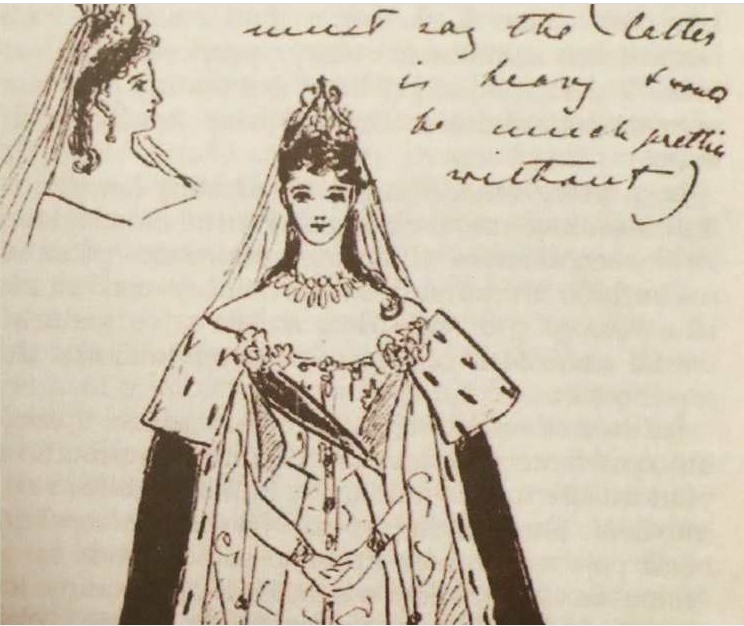 must say the (latter
is heavy & would
be much prettier
without)